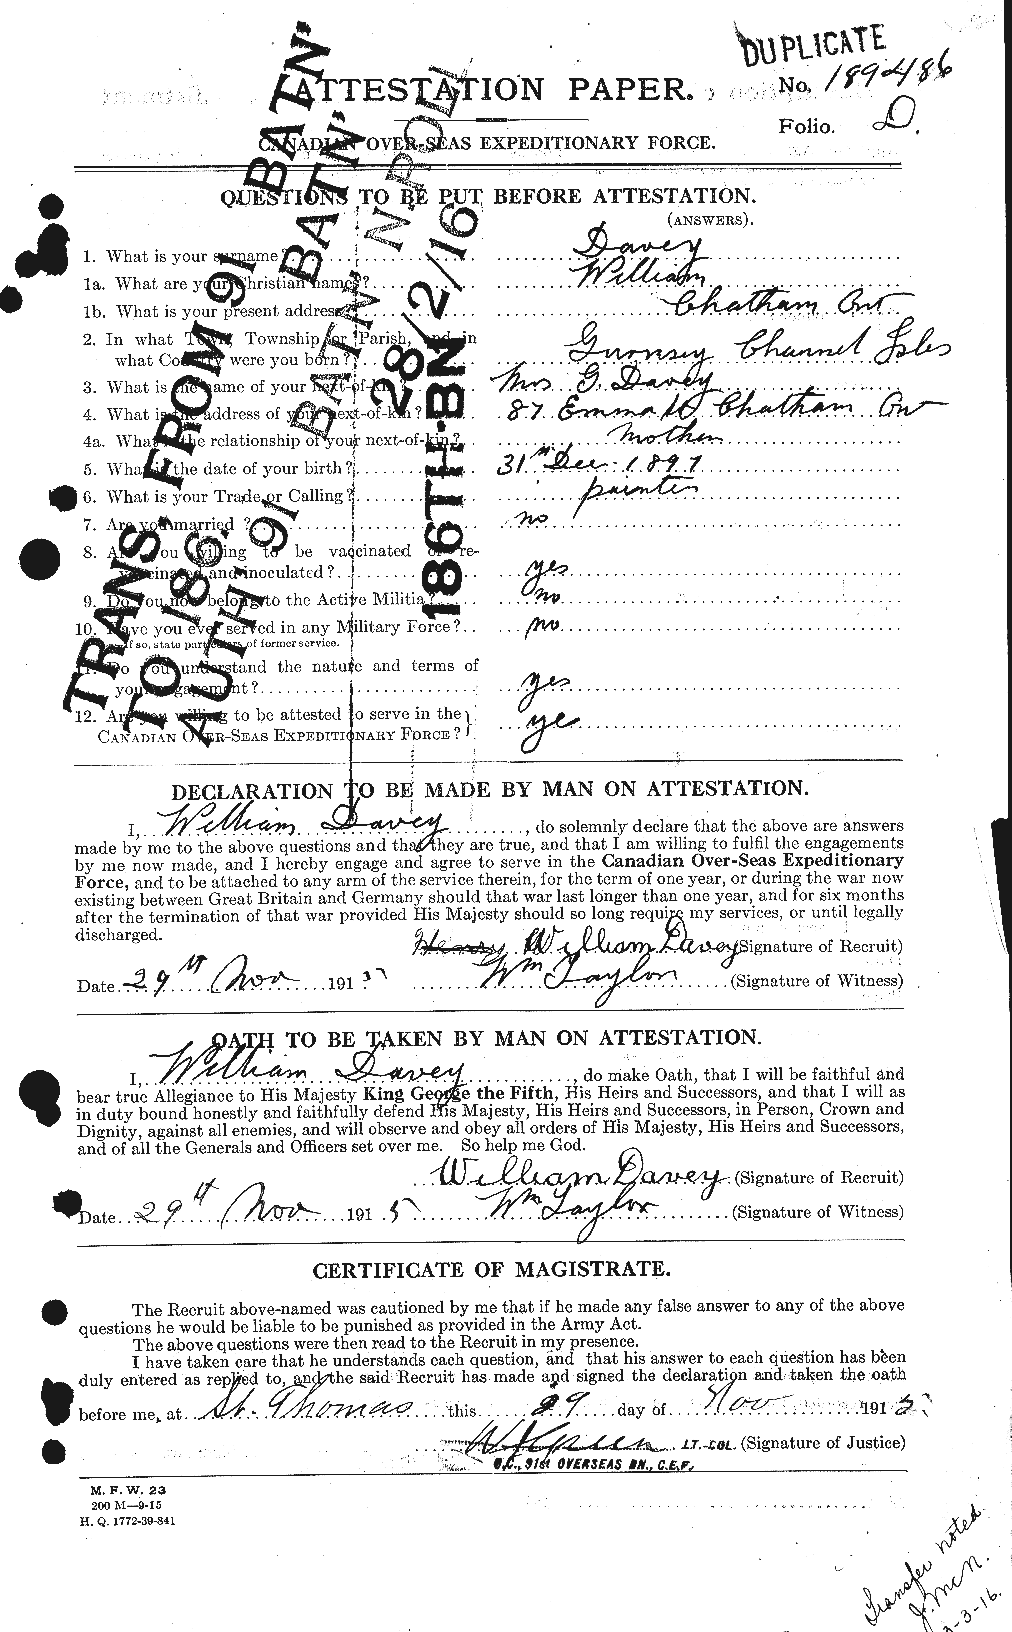 DUPLICATE
ATTESTATION PAPER.
No. 189486
Folio. D.
CANADIAN OVER-SEAS EXPEDITIONARY FORCE.
QUESTIONS TO BE PUT BEFORE ATTESTATION.
(ANSWERS).
1. What is your surname? Davey
1a. What are your Christian names? William
1b. What is your present address? Chatham Ont
2. In what Town, Township or Parish, and in
what Country were you born? Gurnsey Channel Isles
3. What is the name of your next-of-kin? Mrs G. Davey
4. What is the address of your next-of-kin? 87 Emma St Chatham Ont
4a. What is the relationship of your next-of-kin? Mother
5. What is the date of your birth? 31st Dec. 1897
6. What is your Trade or Calling? painter
7. Are you married? no
8. Are you willing to be vaccinated or re-
vaccinated and inoculated? yes
9. Do you now belong to the Active Militia? no
10. Have you ever served in any Military Force? no
If so, state particulars of former service.
11. Do you understand the nature and terms of
your engagement? yes
12. Are you willing to be attested to serve in the
CANADIAN OVER-SEAS EXPEDITIONARY FORCE? ye
TRANS. FROM 91 BATN'
TO 186. BATN'
AUTH. 91 BATN' N.ROLL
28/2/16
186TH-BN
DECLARATION TO BE MADE BY MAN ON ATTESTATION.
I, William Davey, do solemnly declare that the above are answers
made by me to the above questions and that they are true, and that I am willing to fulfil the engagements
by me now made, and I hereby engage and agree to serve in the Canadian Over-Seas Expeditionary
Force, and to be attached to any arm of the service therein, for the term of one year, or during the war now
existing between Great Britain and Germany should that war last longer than one year, and for six months
after the termination of that war provided His Majesty should so long require my services, or until legally
discharged.
Henry William Davey (Signature of Recruit)
Date 29th Nov 1915 Wm Taylor (Signature of Witness)
OATH TO BE TAKEN BY MAN ON ATTESTATION.
I, William Davey, do make Oath, that I will be faithful and
bear true Allegiance to His Majesty King George the Fifth, His Heirs and Successors, and that I will as
in duty bound honestly and faithfully defend His Majesty, His Heirs and Successors, in Person, Crown and
Dignity, against all enemies, and will observe and obey all orders of His Majesty, His Heirs and Successors,
and of all the Generals and Officers set over me. So help me God.
William Davey (Signature of Recruit)
Date 29th Nov 1915 Wm Taylor (Signature of Witness)
CERTIFICATE OF MAGISTRATE.
The Recruit above-named was cautioned by me that if he made any false answer to any of the above
questions he would be liable to be punished as provided in the Army Act.
The above questions were then read to the Recruit in my presence.
I have taken care that he understands each question, and that his answer to each question has been
duly entered as replied to, and the said Recruit has made and signed the declaration and taken the oath
before me, at St. Thomas this 29 day of Nov 1915
W J Green LT.-COL. (Signature of Justice)
O.C., 91st OVERSEAS BN., C.E.F.
M. F. W. 23
200 M—9-15
H. Q. 1772-39-841
Transfer noted
J. McN.
3-16.